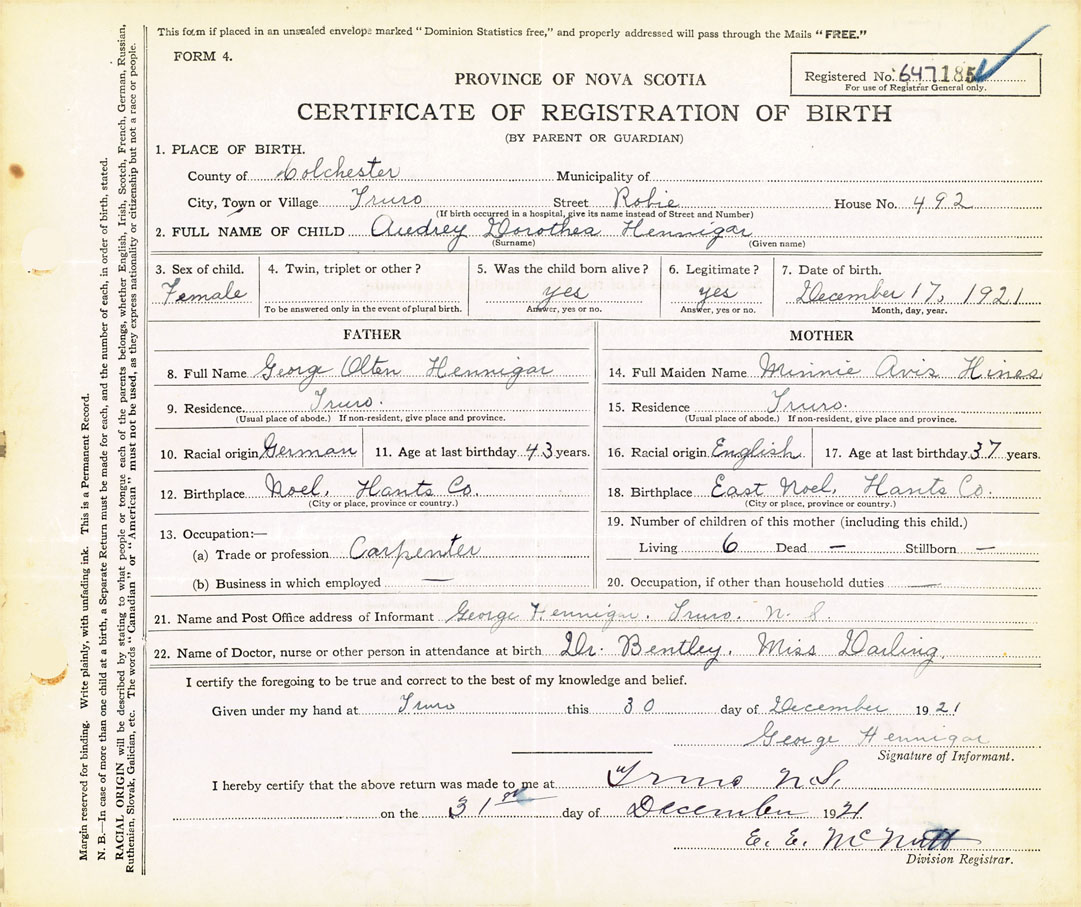 This form if placed in an unsealed envelope marked "Dominion Statistics free," and properly addressed will pass through the Mails "FREE."
FORM 4.
Registered No. 647185
For use of Registrar General only.
PROVINCE OF NOVA SCOTIA
CERTIFICATE OF REGISTRATION OF BIRTH
(BY PARENT OR GUARDIAN)
1. PLACE OF BIRTH.
County of Colchester Municipality of
City, Town or Village Truro Street Robie House No. 492
(If birth occurred in a hospital, give its name instead of Street and Number)
2. FULL NAME OF CHILD Audrey Dorothea Hennigar
(Surname) (Given name)
3. Sex of child. 4. Twin, triplet or other? 5. Was the child born alive? 6. Legitimate? 7. Date of birth.
Female yes yes December 17, 1921
To be answered only in the event of plural birth. Answer, yes or no. Answer, yes or no. Month, day, year.
FATHER
8. Full Name George Olten Hennigar
9. Residence Truro.
(Usual place of abode.) If non-resident, give place and province.
10. Racial origin German 11. Age at last birthday 43 years.
12. Birthplace Noel, Hants Co.
(City or place, province or country.)
13. Occupation:—
(a) Trade or profession Carpenter
(b) Business in which employed —
MOTHER
14. Full Maiden Name Minnie Avis Hines
15. Residence Truro.
(Usual place of abode.) If non-resident, give place and province.
16. Racial origin English. 17. Age at last birthday 37 years.
18. Birthplace East Noel, Hants Co.
(City or place, province or country.)
19. Number of children of this mother (including this child.)
Living 6 Dead — Stillborn —
20. Occupation, if other than household duties —
21. Name and Post Office address of Informant George Hennigar. Truro. N. S.
22. Name of Doctor, nurse or other person in attendance at birth Dr. Bentley. Miss Darling.
I certify the foregoing to be true and correct to the best of my knowledge and belief.
Given under my hand at Truro this 30 day of December 1921
George Hennigar
Signature of Informant.
I hereby certify that the above return was made to me at Truro N.S.
on the 31st day of December 1921.
E. E. McNutt
Division Registrar.
Margin reserved for binding. Write plainly, with unfading ink. This is a Permanent Record.
N. B.—In case of more than one child at a birth, a Separate Return must be made for each, and the number of each, in order of birth, stated.
RACIAL ORIGIN will be described by stating to what people or tongue each of the parents belongs, whether English, Irish, Scotch, French, German, Russian,
Ruthenian, Slovak, Galician, etc. The words "Canadian" or "American" must not be used, as they express nationality or citizenship but not a race or people.